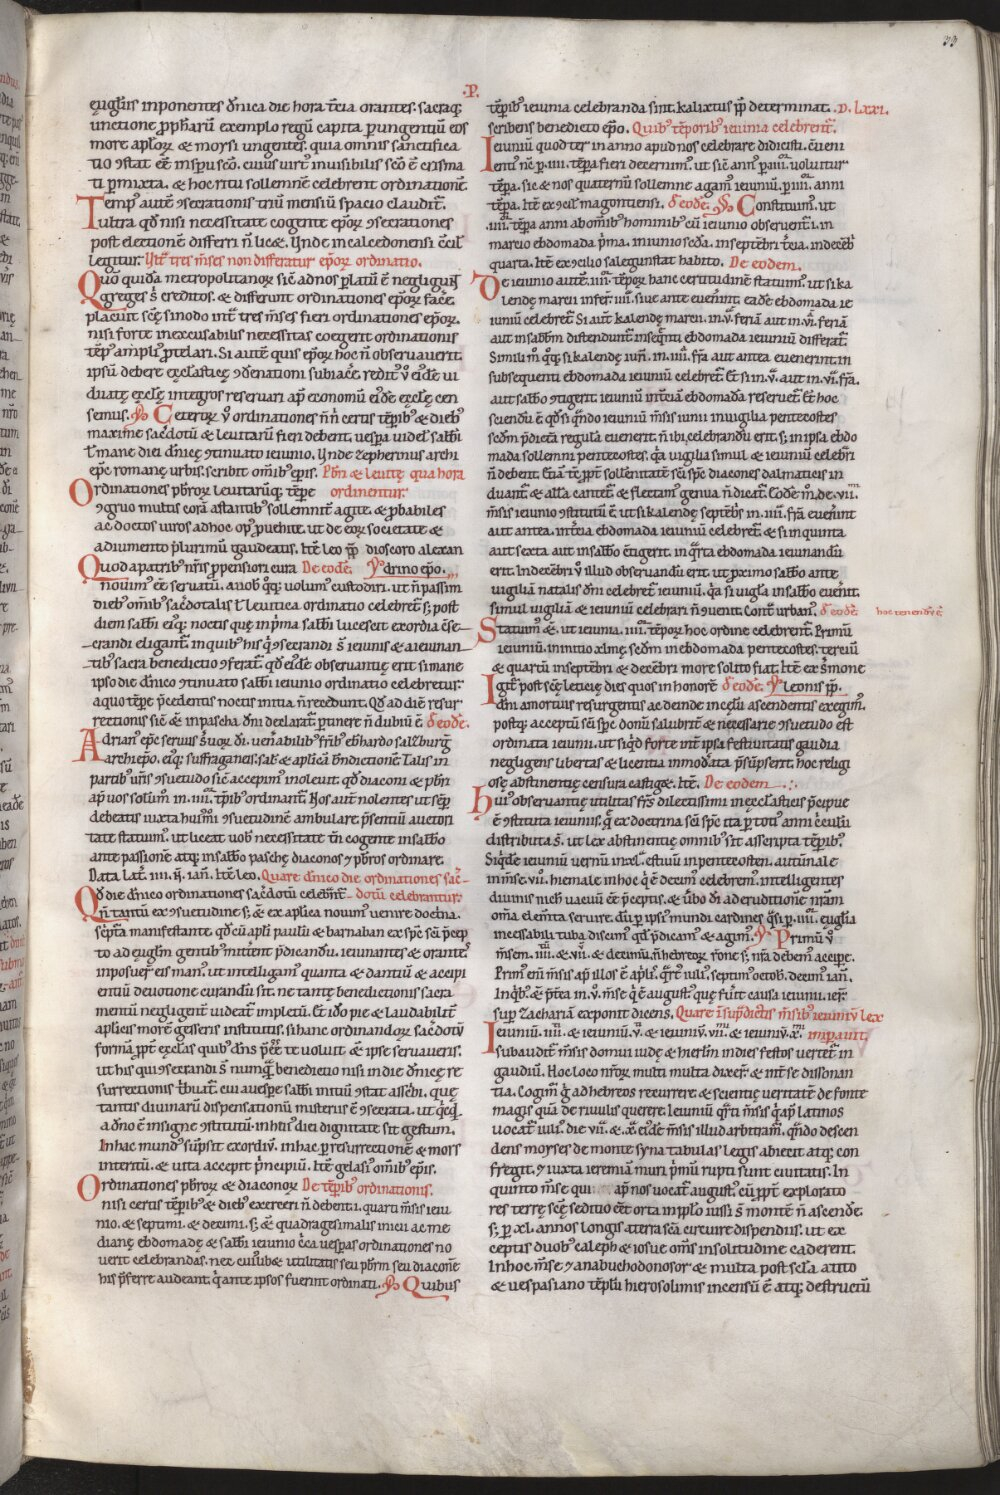 33
.P.
ęuglĩis inponentes dñica die hora t̃cia orantes. sacraq;
unctione ꝓphãrũ exemplo regũ capita ꝑungentiũ eos
more aplõꝝ & moysi ungentes. quia omnis sanctifica
tio ꝯstat eẽ in spũ scõ. cuius uirt᷒ inuisibilis scõ ẽ crisma
ti ꝑmixta. & hoc ritu sollemnẽ celebrent ordinationẽ.
Temp᷒ autẽ ꝯsecrationis triũ mensiũ spacio claudit̃.
ultra qđ nisi necessitate cogente ep̃oꝝ ꝯsecrationes
post electionẽ differri ñ licæ. Unde in calcedonensi cc̃il
legitur. Ut̃ tres m̃ses non differatur ep̃oꝝ ordinatio.
Quõ quidã metropolitanoꝝ sic̃ ad nos ꝑlatũ ẽ negligunt
greges s̃ creditos. & differunt ordinationes ep̃oꝝ facẽ.
placuit scẽ sinodo int̃ tres m̃ses fieri ordinationes ep̃oꝝ.
nisi forte inexcusabilis necessitas coegerit ordinationis
tẽp᷒ ampli᷒ ꝓtelari. Si autẽ quis ep̃oꝝ hoc ñ obseruauerit.
ipsũ debere ęxclasticę ꝯdẽnationi subiacẽ. redit᷒ ṽ eidẽ ui
duatę ęcclę integros reseruari ap̃ economũ eidẽ ęcclę cen
semus. Ceteroꝝ ṽ ordinationes ñ ñ certis tẽpib᷒ & dieb᷒
maxime sacẽdotũ & leuitarũ fieri debent. uespa uidel̃ sabbi
l̃ mane diei dñicę ꝯtinuato ieiunio. Unde zephirinus archi
epc̃ romanę urbis. scribit om̃ib᷒ epis. Pbr̃i & leuitę qua hora
Ordinationes pbr̃oꝝ leuitarũq; tẽpe ordinentur.
ꝯgruo multis corã astantib᷒ sollemnit̃ agite. & ꝓbabiles
ac doctos uiros ad hoc op᷒ ꝓuehite. ut de eoꝝ societate &
adiumento plurimũ gaudeatis. Itẽ leo pp̃ dioscoro alexan
Quod a patrib᷒ nr̃is ꝓpensiori cura De eodẽ. drino ep̃o.
nouim᷒ eẽ seruatũ. a uob᷒ qq; uolum᷒ custodiri. ut ñ passim
dieb᷒ om̃ib᷒ sacẽdotalis l̃ leuitica ordinatio celebret̃ s; post
diem sabbi ei᷒q; noctis quę in p᷒ma sabbi lucescit exordia cs̃e
crandi eligant̃. in quib᷒ his q̇ ꝯsecrandi s̃ ieiunis & a ieiunan
tib᷒ sacra benedictio ꝯferat̃. qđ eidẽ obseruantię erit si mane
ipso die dñico ꝯtinuato sabbi ieiunio ordinatio celebretur.
a quo tẽpe p̃cedentis noctis initia ñ recedunt. Qđ ad diẽ resur
rectionis sic̃ & in pascha dñi declarat̃ ꝑtinere ñ dubiũ ẽ. d̃ eodẽ.
Adrian᷒ epc̃ seruus s̃uoꝝ dĩ. uen̾abilib᷒ fr̃ib᷒ eb̾hardo salzburg̃
archiepõ. ei᷒q; suffraganeis. sal̃ & apl̃icã bn̾dictionẽ. Talis in
partib᷒ ur̃is ꝯsuetudo sic̃ accepim᷒ inoleuit. qđ diaconi & pbr̃i
ap̃ uos solum̃ in .iiii. tp̃rib᷒ ordinant̃. Nos aut̃ nolentes ut sẽp
debeatis iuxta hui᷒m̃i ꝯsuetudinẽ ambulare. p̃sentiũ auctori
tate statuim᷒. ut liceat uob̃ necessitate tñ cogente in sabbo
ante passionẽ atq; in sabbo paschę diaconos & pbr̃os ordinare.
Data Lat̃. iiii. ñ. iañ. Itẽ leo. Quare dñico die ordinationes sac̃
Qđ die dñico ordinationes sacẽdotũ celebrẽnt. dotũ celebrantur.
ñ tantũ ex ꝯsuetudine s; & ex apl̃ica nouim᷒ uenire doctr̃na.
sc̃pt̃a manifestante. qđ cũ apl̃i paulũ & barnaban ex sp̃c sc̃i p̃cep
to ad euglm̃ gentib᷒ mitterent p̃dicandũ. ieiunantes & orantes
inposuer̃ eis man᷒. ut intelligam᷒ quanta & dantiũ & accipi
entiũ deuotione curandũ sit. ne tantę benedictionis sacra
mentũ negligent̃ uideat̃ impletũ. Et idõ pie & laudabilit̃
apl̃icis morẽ gesseris institutis. si hanc ordinandoꝝ sacẽdotũ
formã ꝓpt̃ ecclẽas quib᷒ dñs p̃eẽ te uoluit & ipse seruaueris.
ut his qui ꝯsecrandi s̃ numquã benedictio nisi in die dñicę re
surrectionis tribuat̃. cui a uespera sabbi initiũ ꝯstat ascbi. quę
tantis diuinarũ dispensationũ misteriis ẽ ꝯsecrata. ut qc̃q̇d
a dño ẽ insigne ꝯstitutũ in hui᷒ diei dignitate sit gestum.
In hac mund᷒ sũpsit exordiũ. in hac ꝑ resurrectionẽ & mors
interitũ. & uita accepit p᷒ncipiũ. Itẽ gelasi᷒ om̃ib᷒ ep̃is.
Ordinationes pbr̃oꝝ & diaconoꝝ De tẽpib᷒ ordinationis.
nisi certis tẽpib᷒ & dieb᷒ exerceri ñ debent. i. quarti m̃sis ieiu
nio. & septimi. & decimi. s; & quadragesimalis inicii ac me
dianę ebdomadę & sabbi ieiunio c᷒ca uesꝑas ordinationes no
uerit celebrandas. nec cui᷒libæ utilitatis seu pbrm̃ seu diaconẽ
his p̃ferre audeant. q̇ ante ipsos fuerint ordinati. Quibus
tẽpib᷒ ieiunia celebranda sint. kalixtus pp̃ determinat. D. lxxi.
scribens benedicto ep̃o. Quib᷒ tẽporib᷒ ieiunia celebrent̃.
Ieiuniũ quod ter in anno apud nos celebrare didicisti. cũ eni
enti᷒ ñc ꝑ .iiii. tẽpera fieri decernim᷒. ut sic̃ ann᷒ ꝑ iiii. uoluitur
tẽpa. sic & nos quaternũ sollemne agam᷒ ieiuniũ. ꝑ iiii. anni
tẽpa. Itẽ ex ꝯcil̃ magontiensi. d̃ eodẽ. Constituim᷒. ut
.iiii. tẽpera anni ab om̃ib᷒ hominib᷒ cũ ieiunio obseruent̃. i. in
marcio ebdomada p᷒ma. in iunio sc̃da. in septẽbri t̃cia. in decẽbri
quarta. Itẽ ex ꝯcilio salegunstat habito. De eodem.
De ieiunio autẽ .iiii. tẽporꝝ hanc certitudinẽ statuim᷒. ut si ka
lendę marcii in fer̃ .iiii. siue ante euenerint. eadẽ ebdomada ie
iuniũ celebret̃. Si aut̃ kalendę marcii. in .v. feriã aut in .vi. feriã
aut in sabbm̃ distendunt̃. in sequenti ebdomada ieiuniũ differat̃.
Simili m̊ qq; si kalendę iunii. in .iiii. fr̃a aut antea euenerint. in
subsequenti ebdomada ieiuniũ celebret̃. Et si in .v. aut in .vi. fr̃a.
aut sabbo ꝯtigerit ieiuniũ in t̃ciã ebdomada reseruet̃. Et hoc
sciendũ ẽ. qđ si q̃ndo ieiuniũ m̃sis iunii in uigilia pentecostes
scđm p̃dictã regulã euenerit. ñ ibi celebrandũ erit. s; in ipsa ebdo
mada sollemni pentecostes. q̇a uigilia simul & ieiuniũ celebri
ñ debent. Etiã tẽ ꝓpt̃ sollẽnitatẽ sc̃i sp̃c diacones dalmaticis in
duant̃. & alla cantet̃. & flectam᷒ genua ñ dicat̃. Eodẽ m̊. de .vii.
m̃sis ieiunio ꝯstitutũ ẽ. ut si kalendę septẽbs̃ in .iiii. fr̃a euenerint
aut antea. in t̃cia ebdomada ieiuniũ celebret̃. & si in quinta
aut sexta aut in sabbo ꝯtigerit. in q̃rta ebdomada ieiunandũ
erit. In decẽbri ṽ illud obseruandũ erit. ut ꝓximo sabbo ante
uigiliã natalis dñi celebret̃ ieiuniũ. q̇a si uigl̃a in sabbo euen̾it.
simul uigiliã & ieiuniũ celebrari ñ ꝯuenit. Cont̃ urbañ. d̃ eodẽ. hoc tenendũ ẽ.
Statuim᷒ &. ut ieiunia .iiii. tẽporꝝ hoc ordine celebrent̃. Primũ
ieiuniũ. in initio xl.mę. scđm in ebdomada pentecostes. terciũ
& quartũ in septẽbri & decẽbri more solito fiat. Itẽ ex s̃mone
Igit̃ post scẽ lęticię dies quos in honorẽ d̃ eodẽ. leonis pp̃.
dñi a mortuis resurgentis ac deinde in cęlũ ascendentis exegim᷒.
postq; acceptũ sc̃i sp̃c donũ salubrit̃ & necessarie ꝯsuetudo est
ordinata ieiunii. ut siq̇d forte int̃ ipsa festiuitatis gaudia
negligens libertas & licentia inmodata p̃sũpserit. hoc religi
osę abstinentię censura castigæ. Itẽ. De eodem.
Hui᷒ obseruantię utilitas frs̃ dilectissimi in ęcclasticis p̃cipue
ẽ ꝯstituta ieiuniis. q̃ ex doctrina sc̃i sp̃c ita ꝑ toti᷒ anni c᷒culũ
distributa s̃. ut lex abstinentię omnib᷒ sit asscripta tẽpib᷒.
Siq̇dẽ ieiuniũ uernũ in xl̃. estiuũ in pentecosten. autũnale
in m̃se .vii. hiemale in hoc q̇ ẽ decim᷒ celebrem᷒. intelligentes
diuinis nich̃ uacuũ eẽ p̃ceptis. & ũbo dĩ ad eruditionẽ nr̃am
om̃ia elemt̃a seruire. dũ ꝑ ipsi᷒ mundi cardines q̃si ꝑ .iiii. euglĩa
incessabili tuba discim᷒ qđ p̃dicam᷒ & agim᷒. Primũ ṽ
m̃sem. iiii. & .vii. & decimũ. ñ hebreoꝝ rõne s; nr̃a debem᷒ accipe.
Prim᷒ eni m̃sis ap̃ illos ẽ apl̃i. q̃rt᷒ iul̃. septim᷒ octob. decim᷒ iañ.
In qb᷒. & p̃t̃ea in .v. m̃se q̇ ẽ august᷒ quę fuer̃it causa ieiunii. ier̃.
suꝑ Zachariã exponit dicens. Quare ĩ sup̃dictis m̃sib᷒ ieiuniũ lex
Ieiuniũ .iiii. & ieiuniũ .v. & ieiuniũ .vii. & ieiuniũ .x. imperauit.
subaudit̃ m̃sis domui iudę & ierlm̃ in dies festos uertet̃ in
gaudiũ. Hoc loco nr̃oꝝ multi multa dixer̃. & int̃ se dissonan
tia. Cogim᷒ g̊ ad hebreos recurrere. & scientię ueritatẽ de fonte
magis quã de riuulis querere. Ieiuniũ q̃rti m̃sis q̇ ap̃ latinos
uocat̃ iuli᷒. die .vii. & .x. eidẽ m̃sis illud arbitram᷒. q̃ndo descen
dens moyses de monte syna tabulas legis abiecit atq; con
fregit. ⁊ iuxta ieremiã muri p᷒mũ rupti sunt ciuitatis. In
quinto m̃se qui ap̃ nos uocat̃ august᷒. cũ ꝓpt̃ explorato
res terrę scẽ seditio eẽt orta in pplo iussi s̃ montẽ ñ ascendẽ.
s; ꝑ .xl. annos longis a terra sc̃a circuire dispendiis. ut ex
ceptis duob᷒ caleph & iosue om̃s in solitudine caderent.
In hoc m̃se ⁊ a nabuchodonosor & multa post sc̃la a tito
& uespasiano tẽplũ hierosolimis incensũ ẽ atq; destructũ